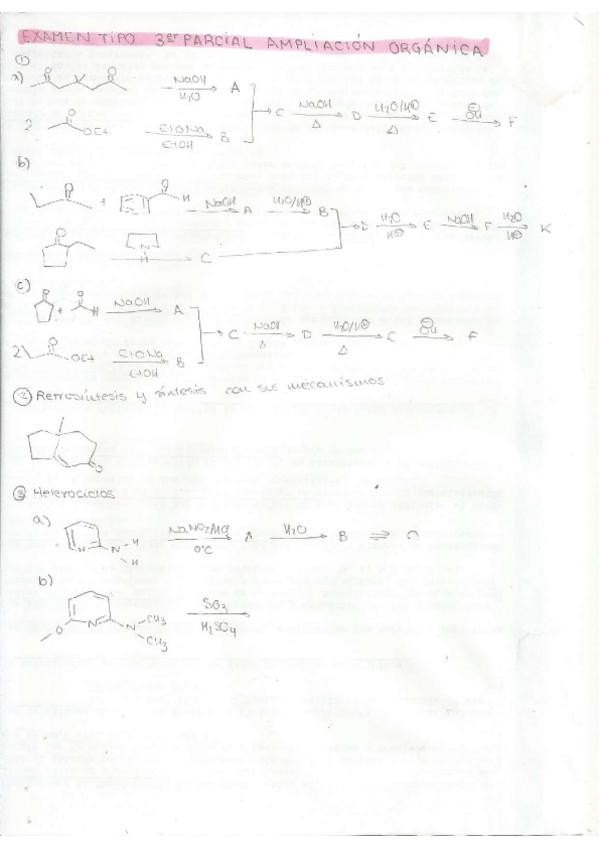 EXAMEN TIPO 3er PARCIAL AMPLIACIÓN ORGÁNICA
①
a) O O NaOH H2O A
2 O OEt EtONa EtOH B C NaOH Δ D H2O/H⊕ Δ E F
b)
O + O H NaOH A H2O/H⊕ B
O N H C D H2O H⊕ E NaOH F H2O H⊕ K
c)
O + O H NaOH A
2 O OEt EtONa EtOH B C NaOH Δ D H2O/H⊕ Δ E F
② Retrosíntesis y síntesis con sus mecanismos
O
③ Heterociclos
a) N N H H NaNO2/HCl 0°C A H2O B ⇌
b)
O N N CH3 CH3 SO3 H2SO4